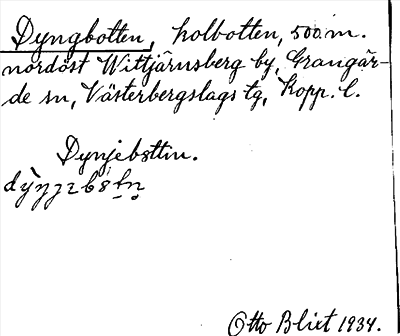 Dyngbotten, holbotten, 500 m.
nordöst Wittjärnsberg by, Grangär-
de sn, Västerbergslags tg, Kopp. l.
Dynjebøttin.
Otto Blixt 1934.